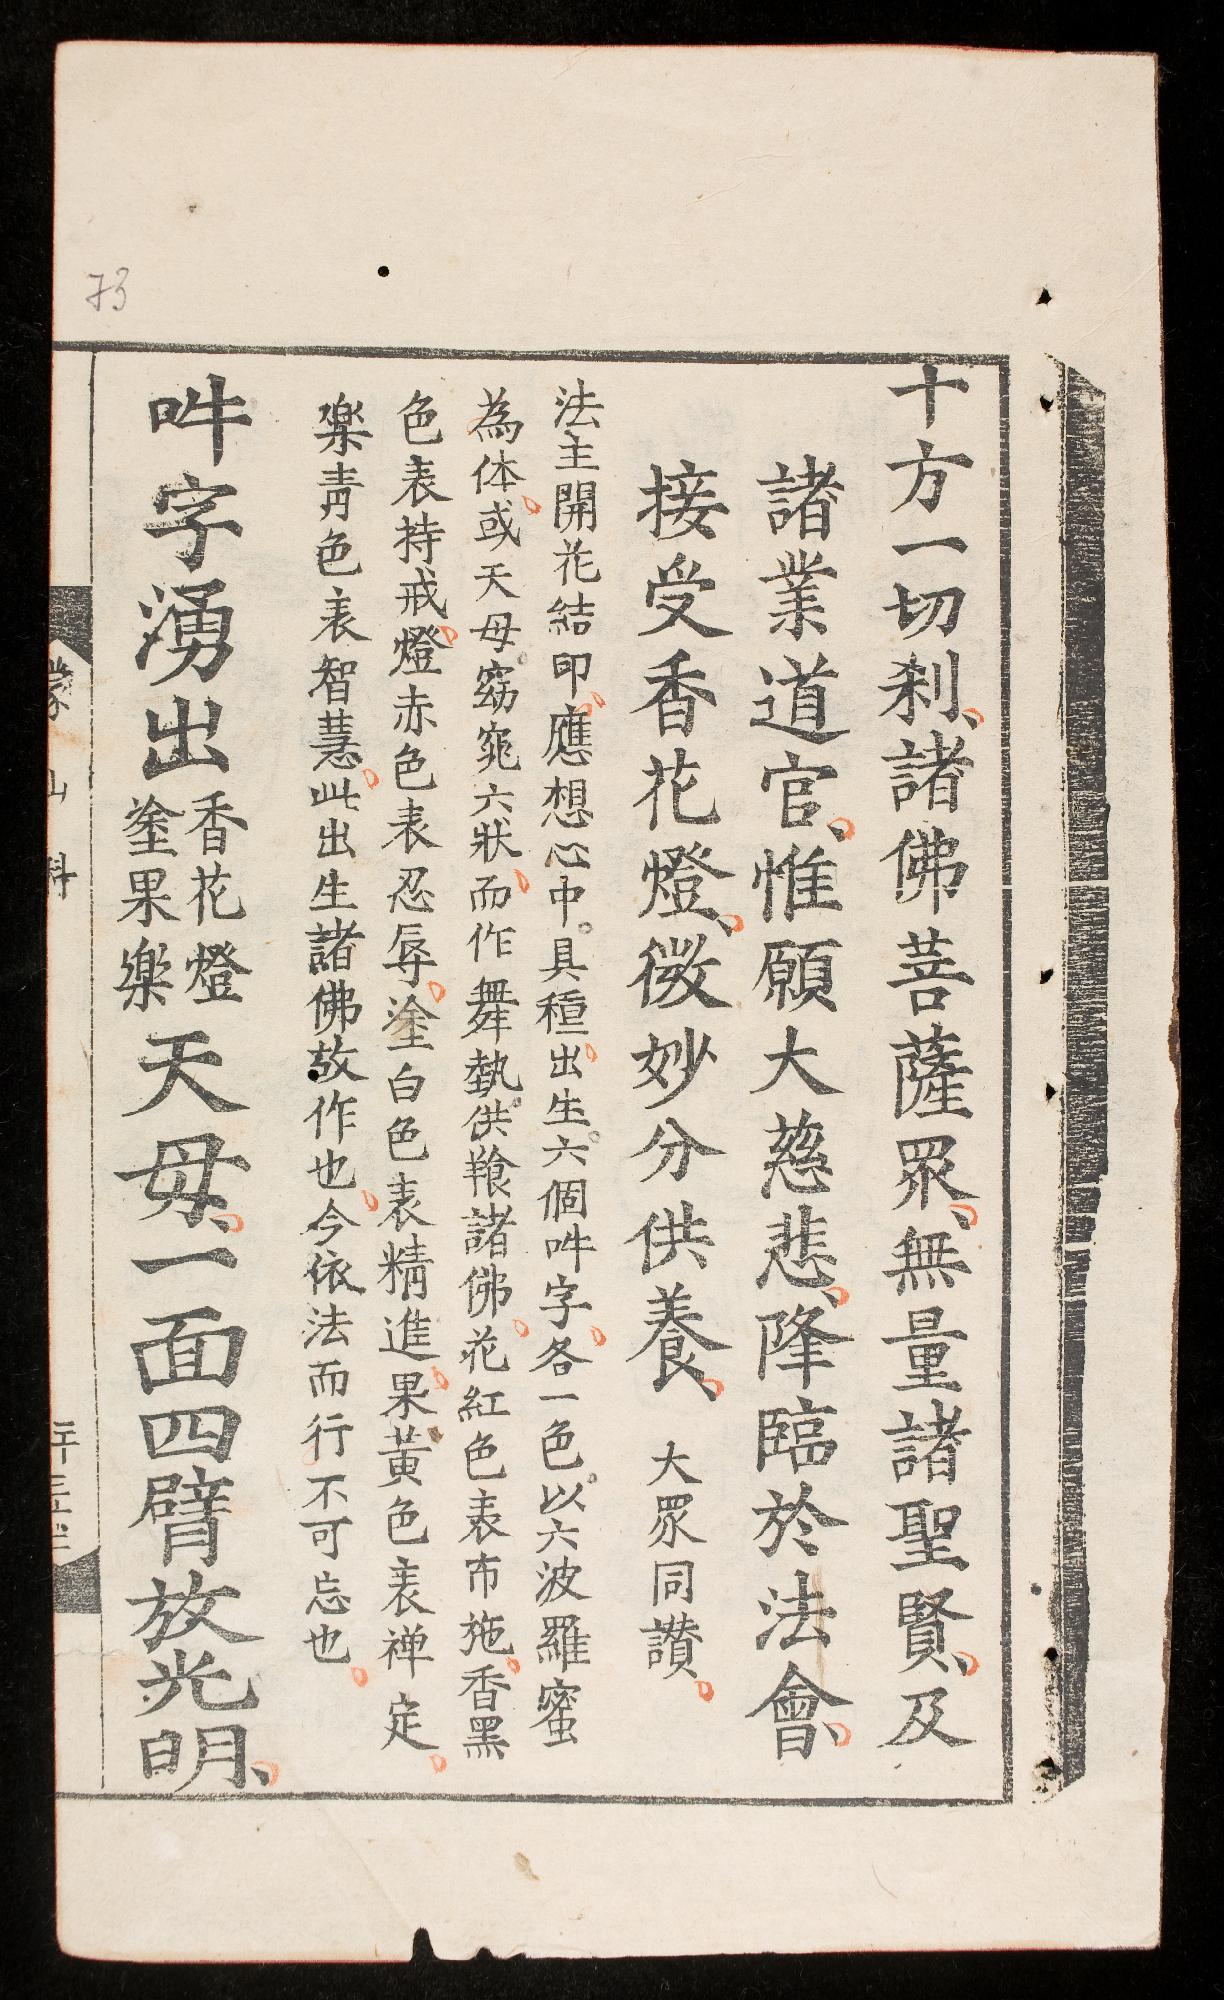 73
十方一切刹、諸佛菩薩眾、無量諸聖賢、及
諸業道官、惟願大慈悲、降臨於法會、
接受香花燈、微妙分供養、 大眾同讃
法主開花結印應想心中具種出生六個吽字各一色以六波羅蜜
為体或天母窈窕六狀而作舞執供養諸佛花紅色表布施香黑
色表持戒燈赤色表忍辱塗白色表精進果黃色表禅定
樂青色表智慧此出生諸佛故作也今依法而行不可忘也
吽字湧出香花燈塗果樂天母、一面四臂放光明、